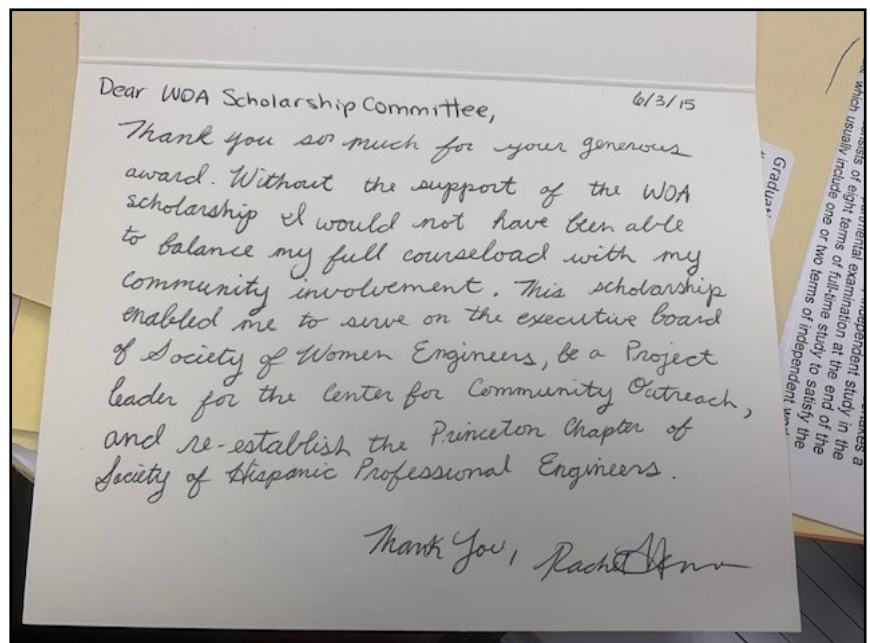 Dear WOA Scholarship Committee,
6/3/15
Thank you so much for your generous
award. Without the support of the WOA
scholarship I would not have been able
to balance my full courseload with my
community involvement. This scholarship
enabled me to serve on the executive board
of Society of Women Engineers, be a Project
leader for the Center for Community Outreach,
and re-establish the Princeton Chapter of
Society of Hispanic Professional Engineers.
Thank You, Rachel
Graduat
independent study in the
consists of eight terms of full-time study to satisfy the
which usually include one or two terms of independent
examination at the end of the